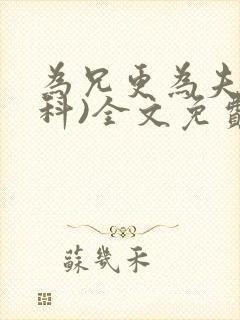 為兄更為夫
科)全文免費
蘇幾禾